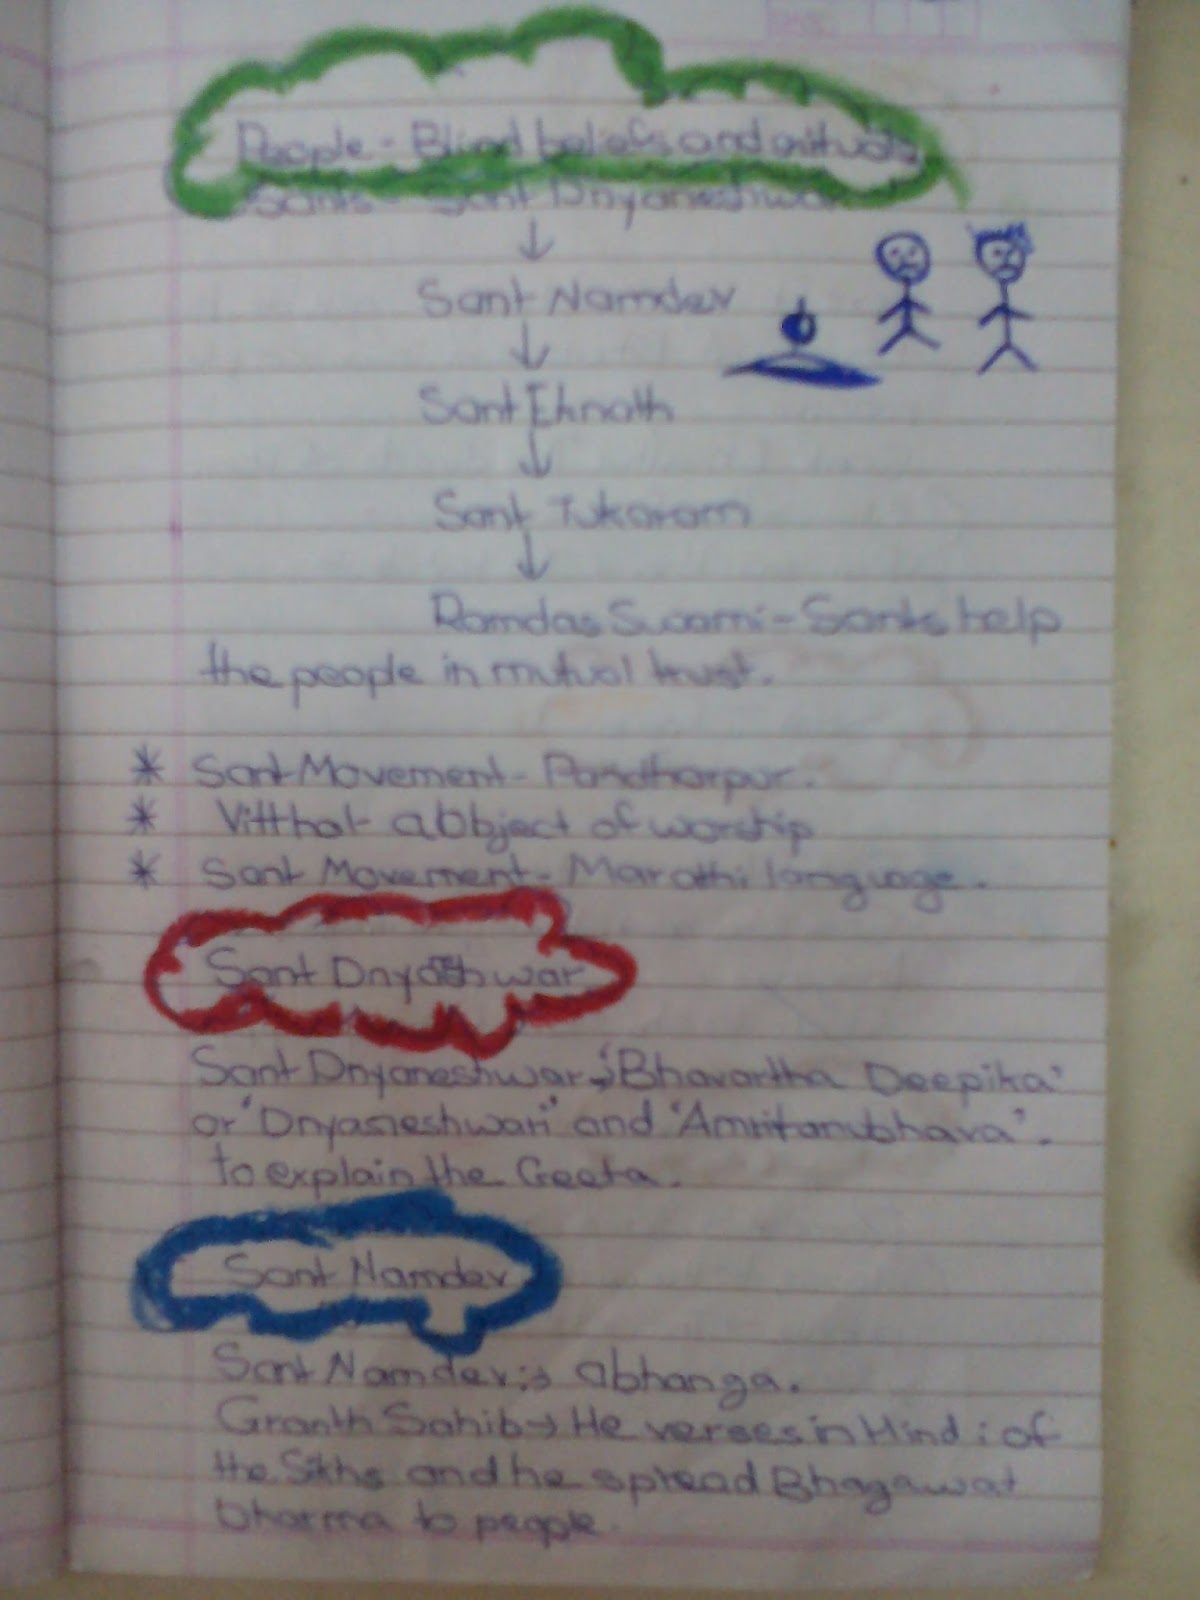 People - Blind beliefs and rituals
Sants - Sant Dnyaneshwar
↓
Sant Namdev
↓
Sant Eknath
↓
Sant Tukaram
↓
Ramdas Swami - Sants help
the people in mutual trust.
* Sant Movement - Pandharpur.
* Vitthal - abbject of worship
* Sant Movement - Marathi language.
Sant Dnyashwar
Sant Dnyaneshwar → 'Bhavartha Deepika'
or 'Dnyaneshwari' and 'Amritanubhava'.
to explain the Geeta.
Sant Namdev
Sant Namdev :→ abhanga.
Granth Sahib → He verses in Hindi of
the Sikhs and he spread Bhagawat
Dharma to people.